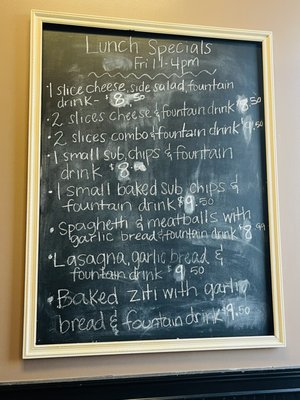 Lunch Specials
Fri 11-4pm
• 1 slice cheese, side salad, fountain
drink - $8.50
• 2 slices cheese & fountain drink $8.50
• 2 slices combo & fountain drink $9.50
• 1 small sub, chips & fountain
drink $8.
• 1 small baked sub, chips &
fountain drink $9.50
• Spaghetti & meatballs with
garlic bread & fountain drink $8.99
• Lasagna, garlic bread &
fountain drink $9.50
• Baked Ziti with garlic
bread & fountain drink $9.50